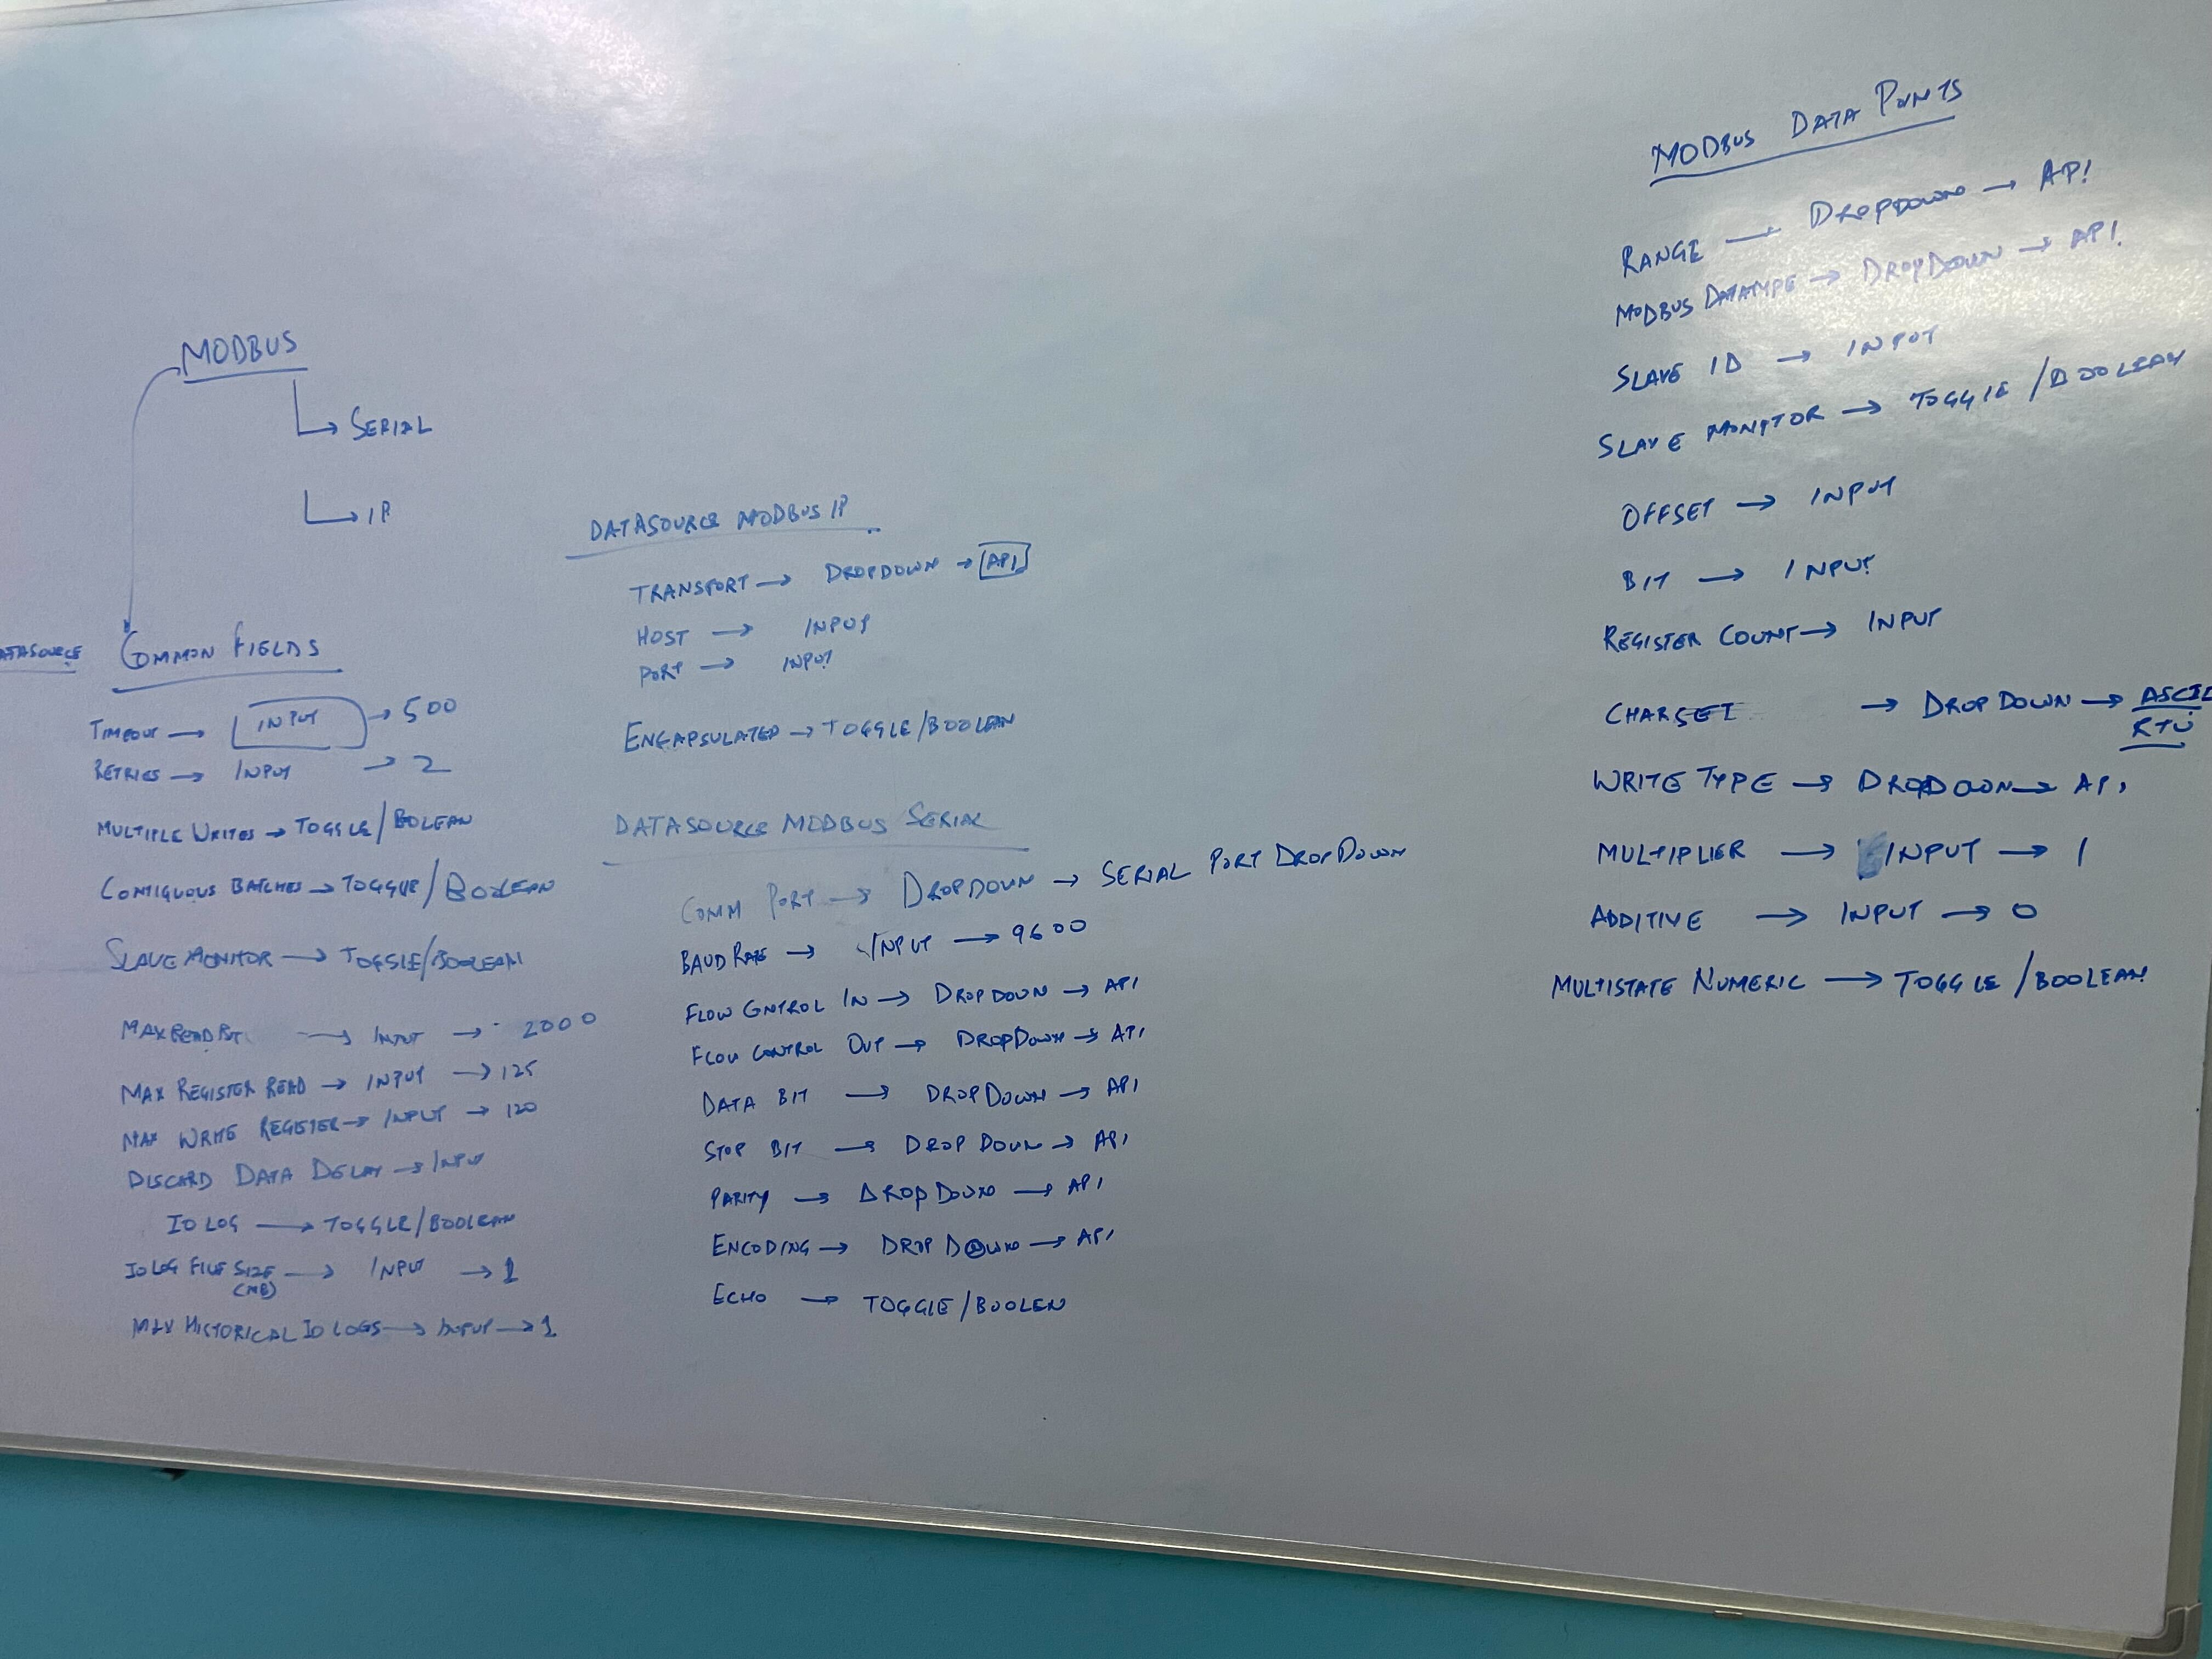 MODBUS
→ SERIAL
→ IP
ATASOURCE COMMON FIELDS
TIMEOUT → INPUT → 500
RETRIES → INPUT → 2
MULTIPLE WRITES → TOGGLE/BOLEAN
CONTIGUOUS BATCHES → TOGGLE/BOOLEAN
SLAVE MONITOR → TOGGLE/BOOLEAN
MAX READ BIT → INPUT → 2000
MAX REGISTER READ → INPUT → 125
MAX WRITE REGISTER → INPUT → 120
DISCARD DATA DELAY → INPUT
IO LOG → TOGGLE/BOOLEAN
IO LOG FILE SIZE → INPUT → 1
(MB)
MAX HISTORICAL IO LOGS → INPUT → 1
DATASOURCE MODBUS IP
TRANSPORT → DROPDOWN → API
HOST → INPUT
PORT → INPUT
ENCAPSULATED → TOGGLE/BOOLEAN
DATASOURCE MODBUS SERIAL
COMM PORT → DROPDOWN → SERIAL PORT DROPDOWN
BAUD RATE → INPUT → 9600
FLOW CONTROL IN → DROPDOWN → API
FLOW CONTROL OUT → DROPDOWN → API
DATA BIT → DROPDOWN → API
STOP BIT → DROP DOWN → API
PARITY → DROP DOWN → API
ENCODING → DROP DOWN → API
ECHO → TOGGLE/BOOLEN
MODBUS DATA POINTS
RANGE → DROPDOWN → API
MODBUS DATATYPE → DROPDOWN → API
SLAVE ID → INPUT
SLAVE MONITOR → TOGGLE/BOOLEAN
OFFSET → INPUT
BIT → INPUT
REGISTER COUNT → INPUT
CHARSET → DROPDOWN → ASCII
RTU
WRITE TYPE → DROPDOWN → API
MULTIPLIER → INPUT → 1
ADDITIVE → INPUT → 0
MULTISTATE NUMERIC → TOGGLE/BOOLEAN